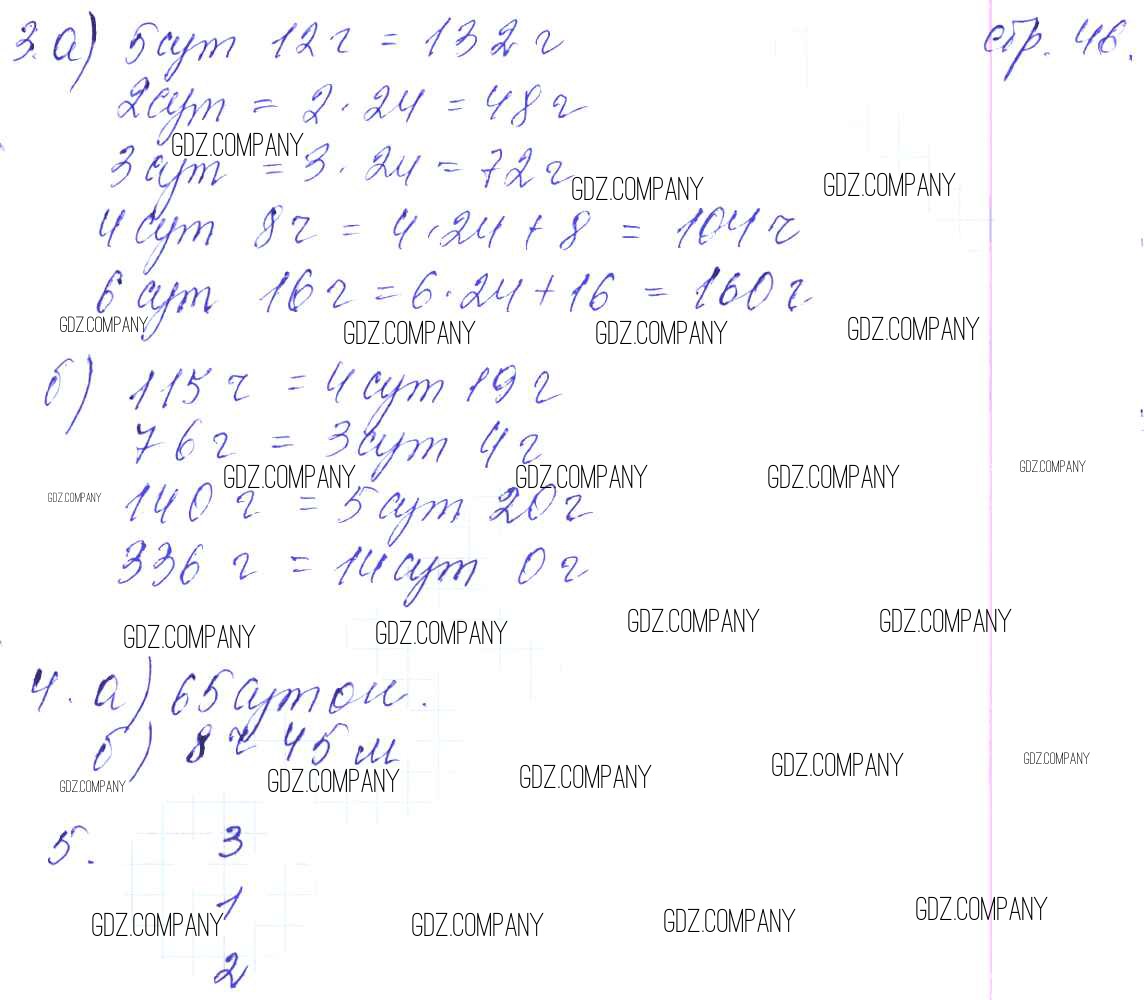 3. а) 5 сут 12 ч = 132 ч стр. 46.
2 сут = 2 · 24 = 48 ч
GDZ.COMPANY
3 сут = 3 · 24 = 72 ч
GDZ.COMPANY GDZ.COMPANY
4 сут 8 ч = 4 · 24 + 8 = 104 ч
6 сут 16 ч = 6 · 24 + 16 = 160 ч
GDZ.COMPANY GDZ.COMPANY GDZ.COMPANY GDZ.COMPANY
б) 115 ч = 4 сут 19 ч
76 ч = 3 сут 4 ч
GDZ.COMPANY GDZ.COMPANY GDZ.COMPANY GDZ.COMPANY
GDZ.COMPANY
140 ч = 5 сут 20 ч
336 ч = 14 сут 0 ч
GDZ.COMPANY GDZ.COMPANY GDZ.COMPANY GDZ.COMPANY
4. а) 65 суток.
б) 8 ч 45 м
GDZ.COMPANY GDZ.COMPANY GDZ.COMPANY GDZ.COMPANY GDZ.COMPANY
5. 3
1
GDZ.COMPANY GDZ.COMPANY GDZ.COMPANY GDZ.COMPANY
2